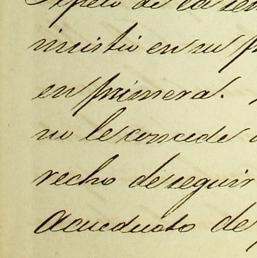 de la
insistió en su
en primera.
no le concede
recho de seguir
acueducto de